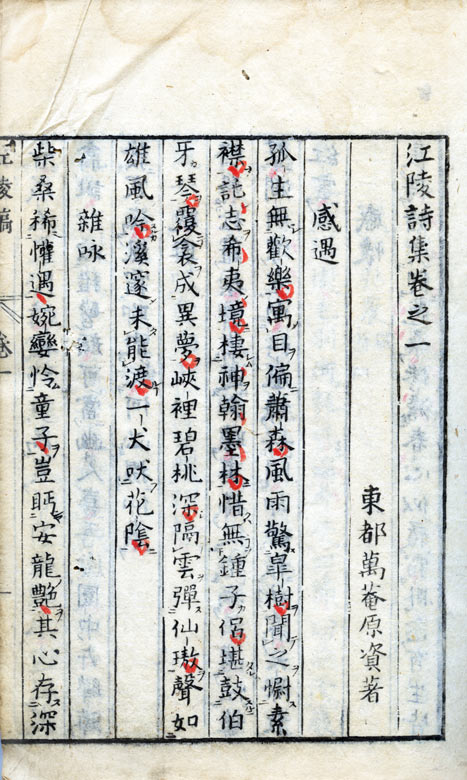 江陵詩集卷之一
東都萬菴原資著
感遇
孤生無歡樂寓目偏蕭森風雨驚皐樹聞之惻素
襟託志希夷境棲神翰墨林惜無鍾子侶堪鼓伯
牙琴霞衾成異夢峽裡碧桃深隔雲彈仙璈聲如
雄風吟溪邃未能渡一犬吠花陰
雜咏
柴桑稀懽遇婉孌怜童子豈眄安龍艶其心存深